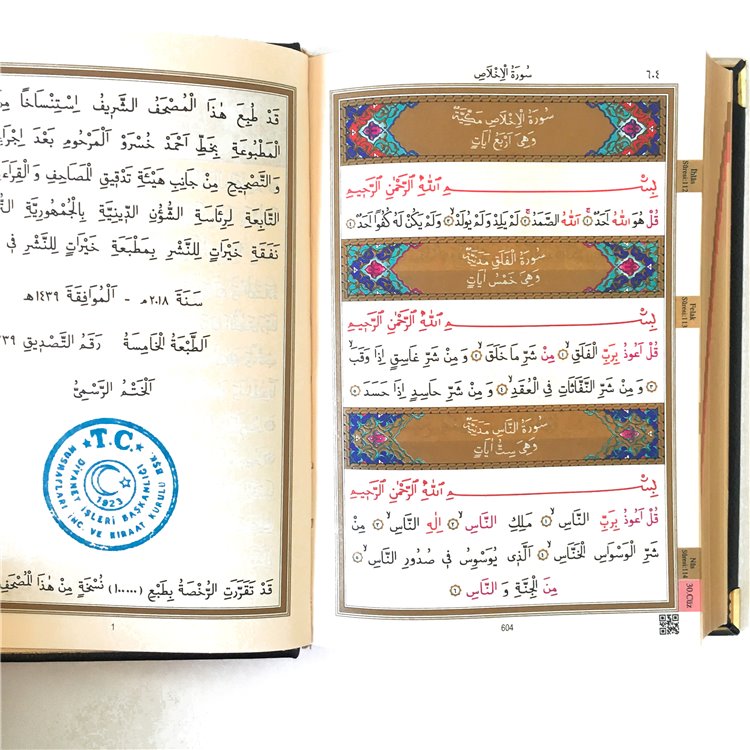 سُورَةُ الْاِخْلَاصِ
٦٠٤
سُورَةُ الْاِخْلَاصِ مَكِّيَّةٌ
وَهِىَ اَرْبَعُ اٰيَاتٍ
بِسْمِ اللّٰهِ الرَّحْمٰنِ الرَّحِيمِ
قُلْ هُوَ اللّٰهُ اَحَدٌ ١ اَللّٰهُ الصَّمَدُ ٢ لَمْ يَلِدْ وَلَمْ يُولَدْ ٣ وَلَمْ يَكُنْ لَهُ كُفُوًا اَحَدٌ ٤
سُورَةُ الْفَلَقِ مَدَنِيَّةٌ
وَهِىَ خَمْسُ اٰيَاتٍ
بِسْمِ اللّٰهِ الرَّحْمٰنِ الرَّحِيمِ
قُلْ اَعُوذُ بِرَبِّ الْفَلَقِ ١ مِنْ شَرِّ مَا خَلَقَ ٢ وَ مِنْ شَرِّ غَاسِقٍ اِذَا وَقَبَ
٣ وَ مِنْ شَرِّ النَّفَّاثَاتِ فِى الْعُقَدِ ٤ وَ مِنْ شَرِّ حَاسِدٍ اِذَا حَسَدَ ٥
سُورَةُ النَّاسِ مَدَنِيَّةٌ
وَهِىَ سِتُّ اٰيَاتٍ
بِسْمِ اللّٰهِ الرَّحْمٰنِ الرَّحِيمِ
قُلْ اَعُوذُ بِرَبِّ النَّاسِ ١ مَلِكِ النَّاسِ ٢ اِلٰهِ النَّاسِ ٣ مِنْ
شَرِّ الْوَسْوَاسِ الْخَنَّاسِ ٤ اَلَّذِى يُوَسْوِسُ فِى صُدُورِ النَّاسِ ٥
مِنَ الْجِنَّةِ وَ النَّاسِ ٦
604
İhlâs
Sûresi:112
Felak
Sûresi:113
Nâs
Sûresi:114
30.Cüz
قَدْ طُبِعَ هٰذَا الْمُصْحَفُ الشَّرِيفُ اِسْتِنْسَاخًا
الْمَطْبُوعَةِ بِخَطِّ اَحْمَدْ خُسْرَوْ الْمَرْحُومِ بَعْدَ
وَ التَّصْحِيحِ مِنْ جَانِبِ هَيْئَةِ تَدْقِيقِ الْمَصَاحِفِ وَ
التَّابِعَةِ لِرِئَاسَةِ الشُّؤُنِ الدِّينِيَّةِ بِالْجُمْهُورِيَّةِ
نَفَقَةِ خَيْرَاتٍ لِلنَّشْرِ بِمَطْبَعَةِ خَيْرَاتٍ لِلنَّشْرِ فِى
سَنَةَ ٢٠١٨م - اَلْمُوَافِقَةَ ١٤٣٩ه
اَلطَّبْعَةُ الْخَامِسَةُ رَقْمُ التَّصْدِيقِ
اَلْخَتْمُ الرَّسْمِىُّ
T.C.
DİYANET İŞLERİ BAŞKANLIĞI
MUSHAFLARI İNC. VE KIRAAT KURULU BŞK.
1923
قَدْ تَقَرَّرَتِ الرُّخْصَةُ بِطَبْعِ (١٠.٠٠٠) نُسْخَةٍ مِنْ هٰذَا الْمُصْحَفِ
1